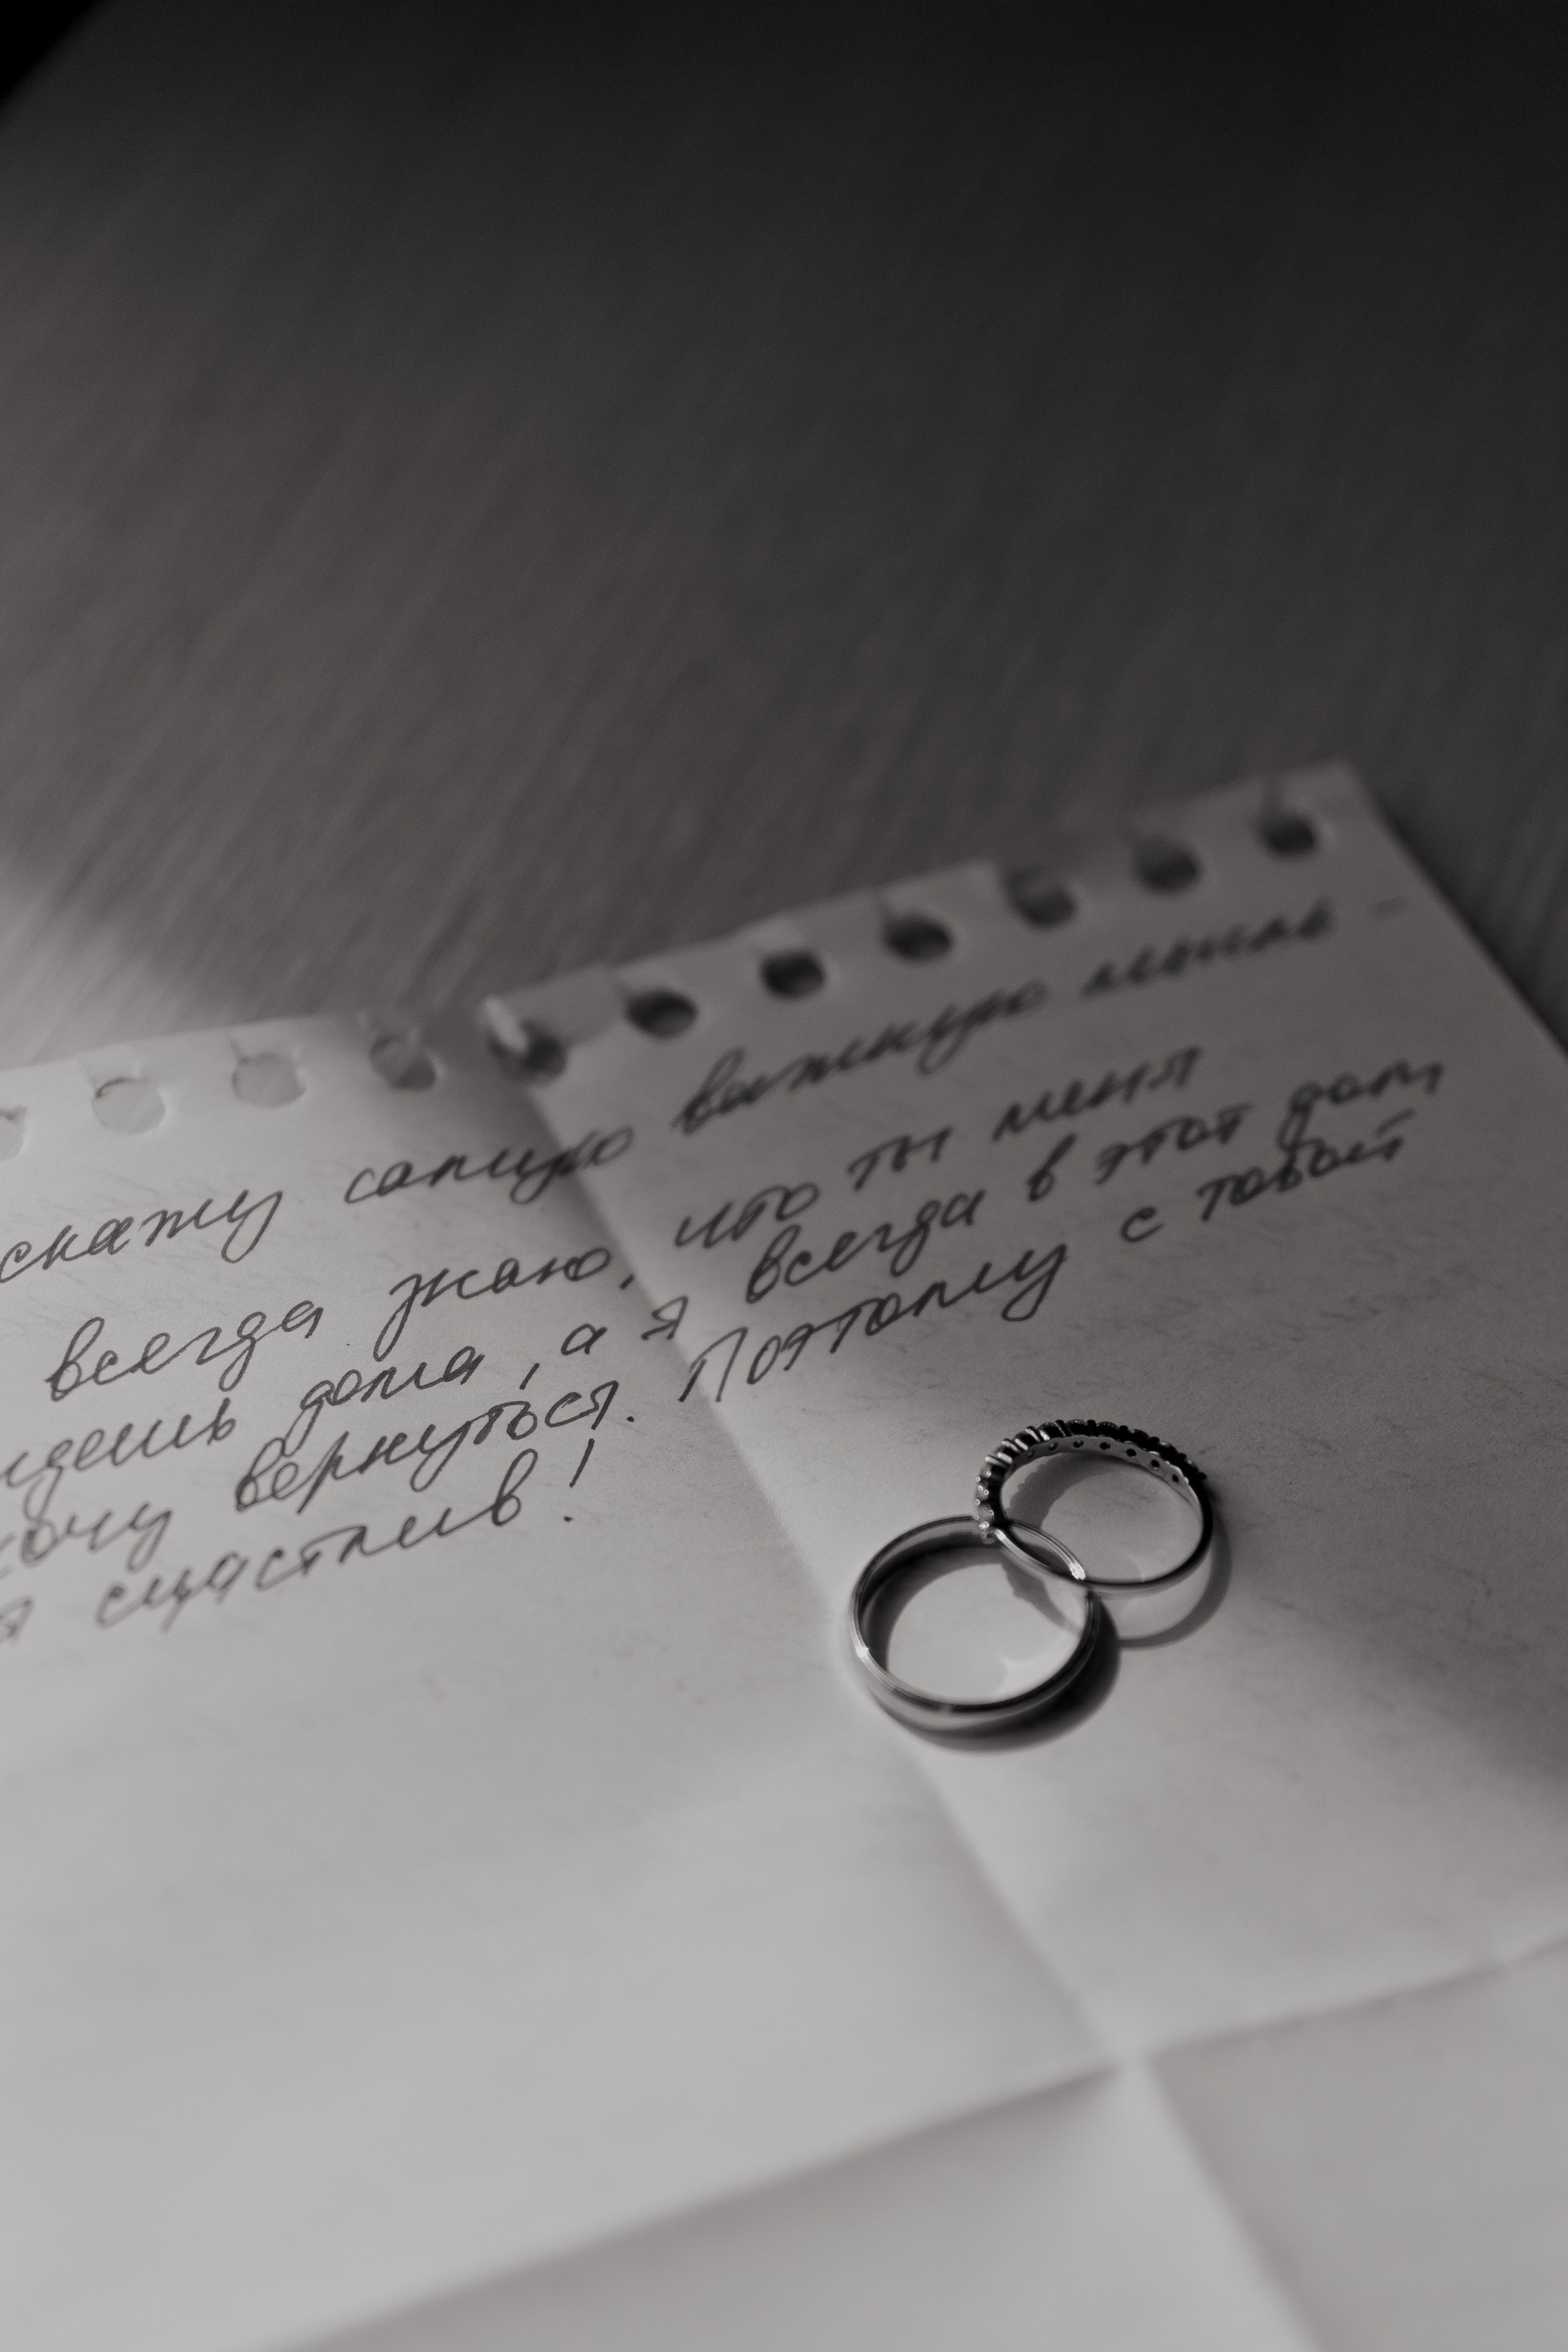 скажу самую важную мысль –
всегда знаю, что ты меня
ждешь дома, а я всегда в этот дом
хочу вернуться. Поэтому с тобой
я счастлив!